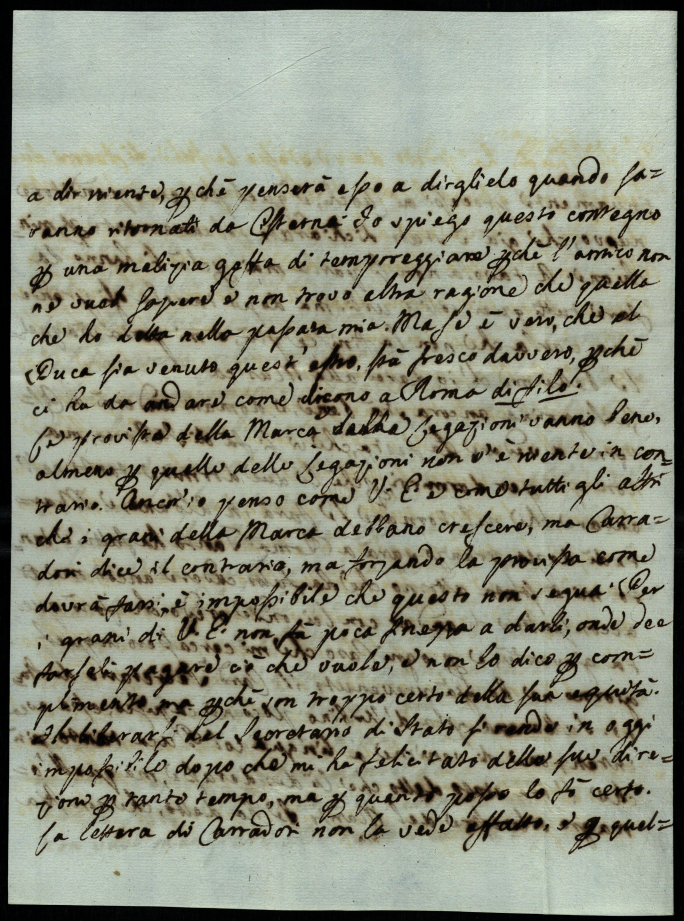 a dir niente, ꝑchè penserà esso a dirglielo quando sa=
ranno ritornati da Cisterna. Io spiego questo contegno
ꝑ una malizia gatta di temporeggiare ꝑchè l'amico non
ne vuol sapere e non trovo altra ragione che quella
che ho detta nella passata mia. Ma se è vero, che il
Duca sia venuto quest' , stà fresco davvero, ꝑchè
ci ha da andare come dicono a Roma di filo.
Le provista della Marca delle Legazioni vanno bene,
almeno ꝑ quelle delle Legazioni non v'è niente in con=
trario. Ancor'io penso come V. E. e come tutti gli altri
che i grani della Marca debbano crescere, ma Carra=
dori dice il contrario, ma forzando la provista come
dovrà farsi, è impossibile che questo non segua. Per
i grani di V. E. non fà poca a darli, onde dee
farseli pagare ciò che vuole, e non lo dico ꝑ com=
plimento, ma ꝑchè son troppo certo della sua equità.
Il liberarsi del Secretario di Stato si rende in oggi
impossibile dopo che mi ha felicitato delle sue dire=
zioni ꝑ tanto tempo, ma ꝑ quanto posso lo fò certo.
La lettera di Carradori non la vede affatto, e ꝑ quel=